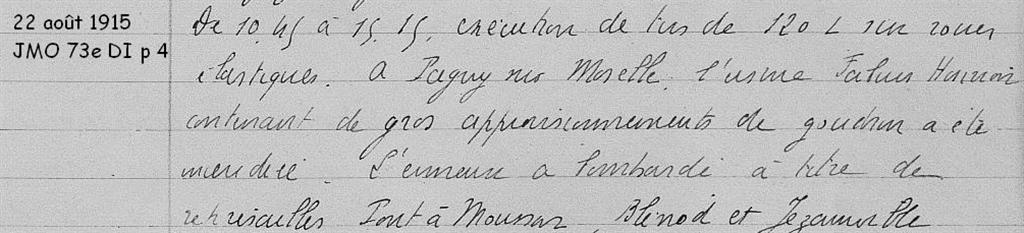 22 août 1915
JMO 73e DI p 4
De 10,45 à 15,15, exécution de tirs de 120 L sur roues
élastiques. A Pagny sur Moselle, l'usine
contenant de gros approvisionnements de goudron a été
incendiée. L'ennemi a bombardé à titre de
représailles Pont à Mousson, Blénod et Jezainville